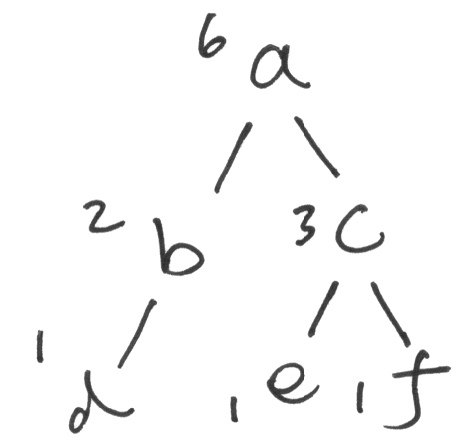 6 a
2 b 3 c
1 d 1 e 1 f